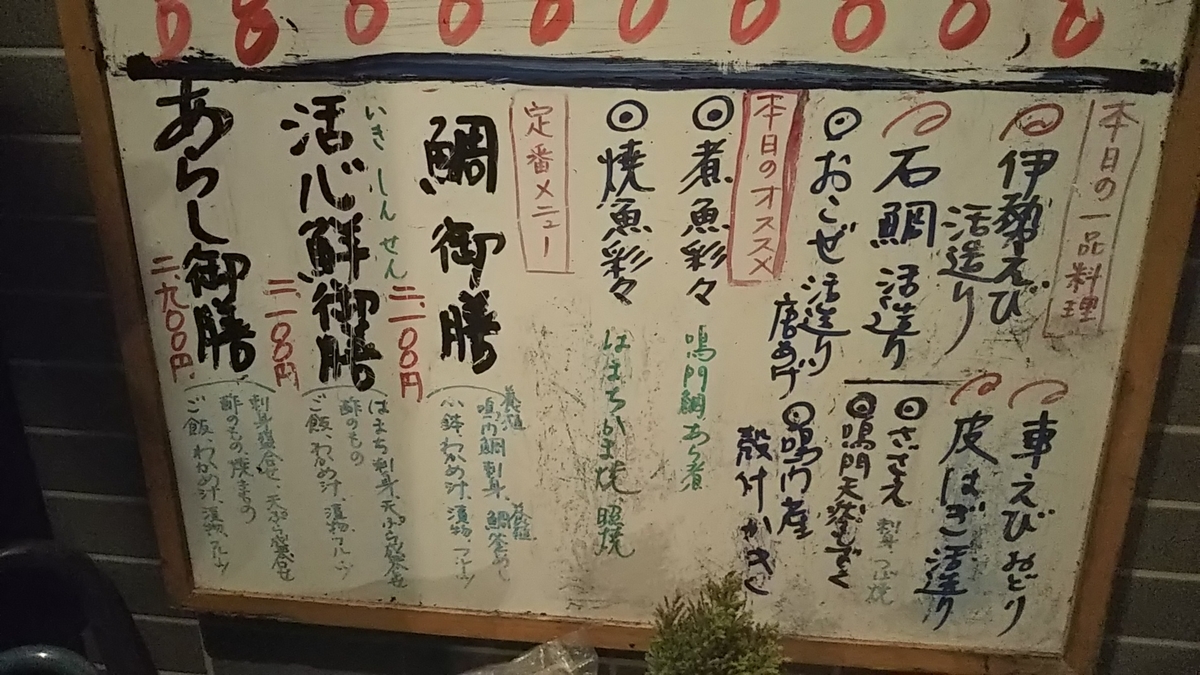 本日の一品料理
伊勢えび
活造り
石鯛 活造り
おこぜ 活造り
唐あげ
車えびおどり
皮はぎ活造り
さざえ 刺身 つぼ焼
鳴門天然もずく
鳴門産
殻付かき
本日のオススメ
煮魚彩々 鳴門鯛あら煮
焼魚彩々 はまちかま焼 照焼
定番メニュー
鯛御膳 二、一〇〇円
養殖
鳴門鯛刺身、鯛釜めし
養殖
小鉢、わかめ汁、漬物、フルーツ
いき しん せん
活心鮮御膳 二、一〇〇円
はまち刺身、天ぷら盛合せ
酢のもの
ご飯、わかめ汁、漬物、フルーツ
あらし御膳 二、九〇〇円
刺身盛合せ 天ぷら盛合せ
酢のもの、焼きもの
ご飯、わかめ汁、漬物、フルーツ